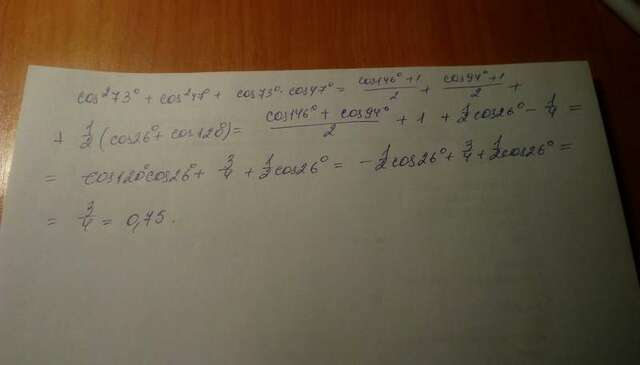 cos²73° + cos²47° + cos73°·cos47° = (cos146°+1)/2 + (cos94°+1)/2 +
+ 1/2 (cos26° + cos120°) = (cos146° + cos94°)/2 + 1 + 1/2 cos26° − 1/4 =
= cos120°cos26° + 3/4 + 1/2 cos26° = −1/2 cos26° + 3/4 + 1/2 cos26° =
= 3/4 = 0,75.